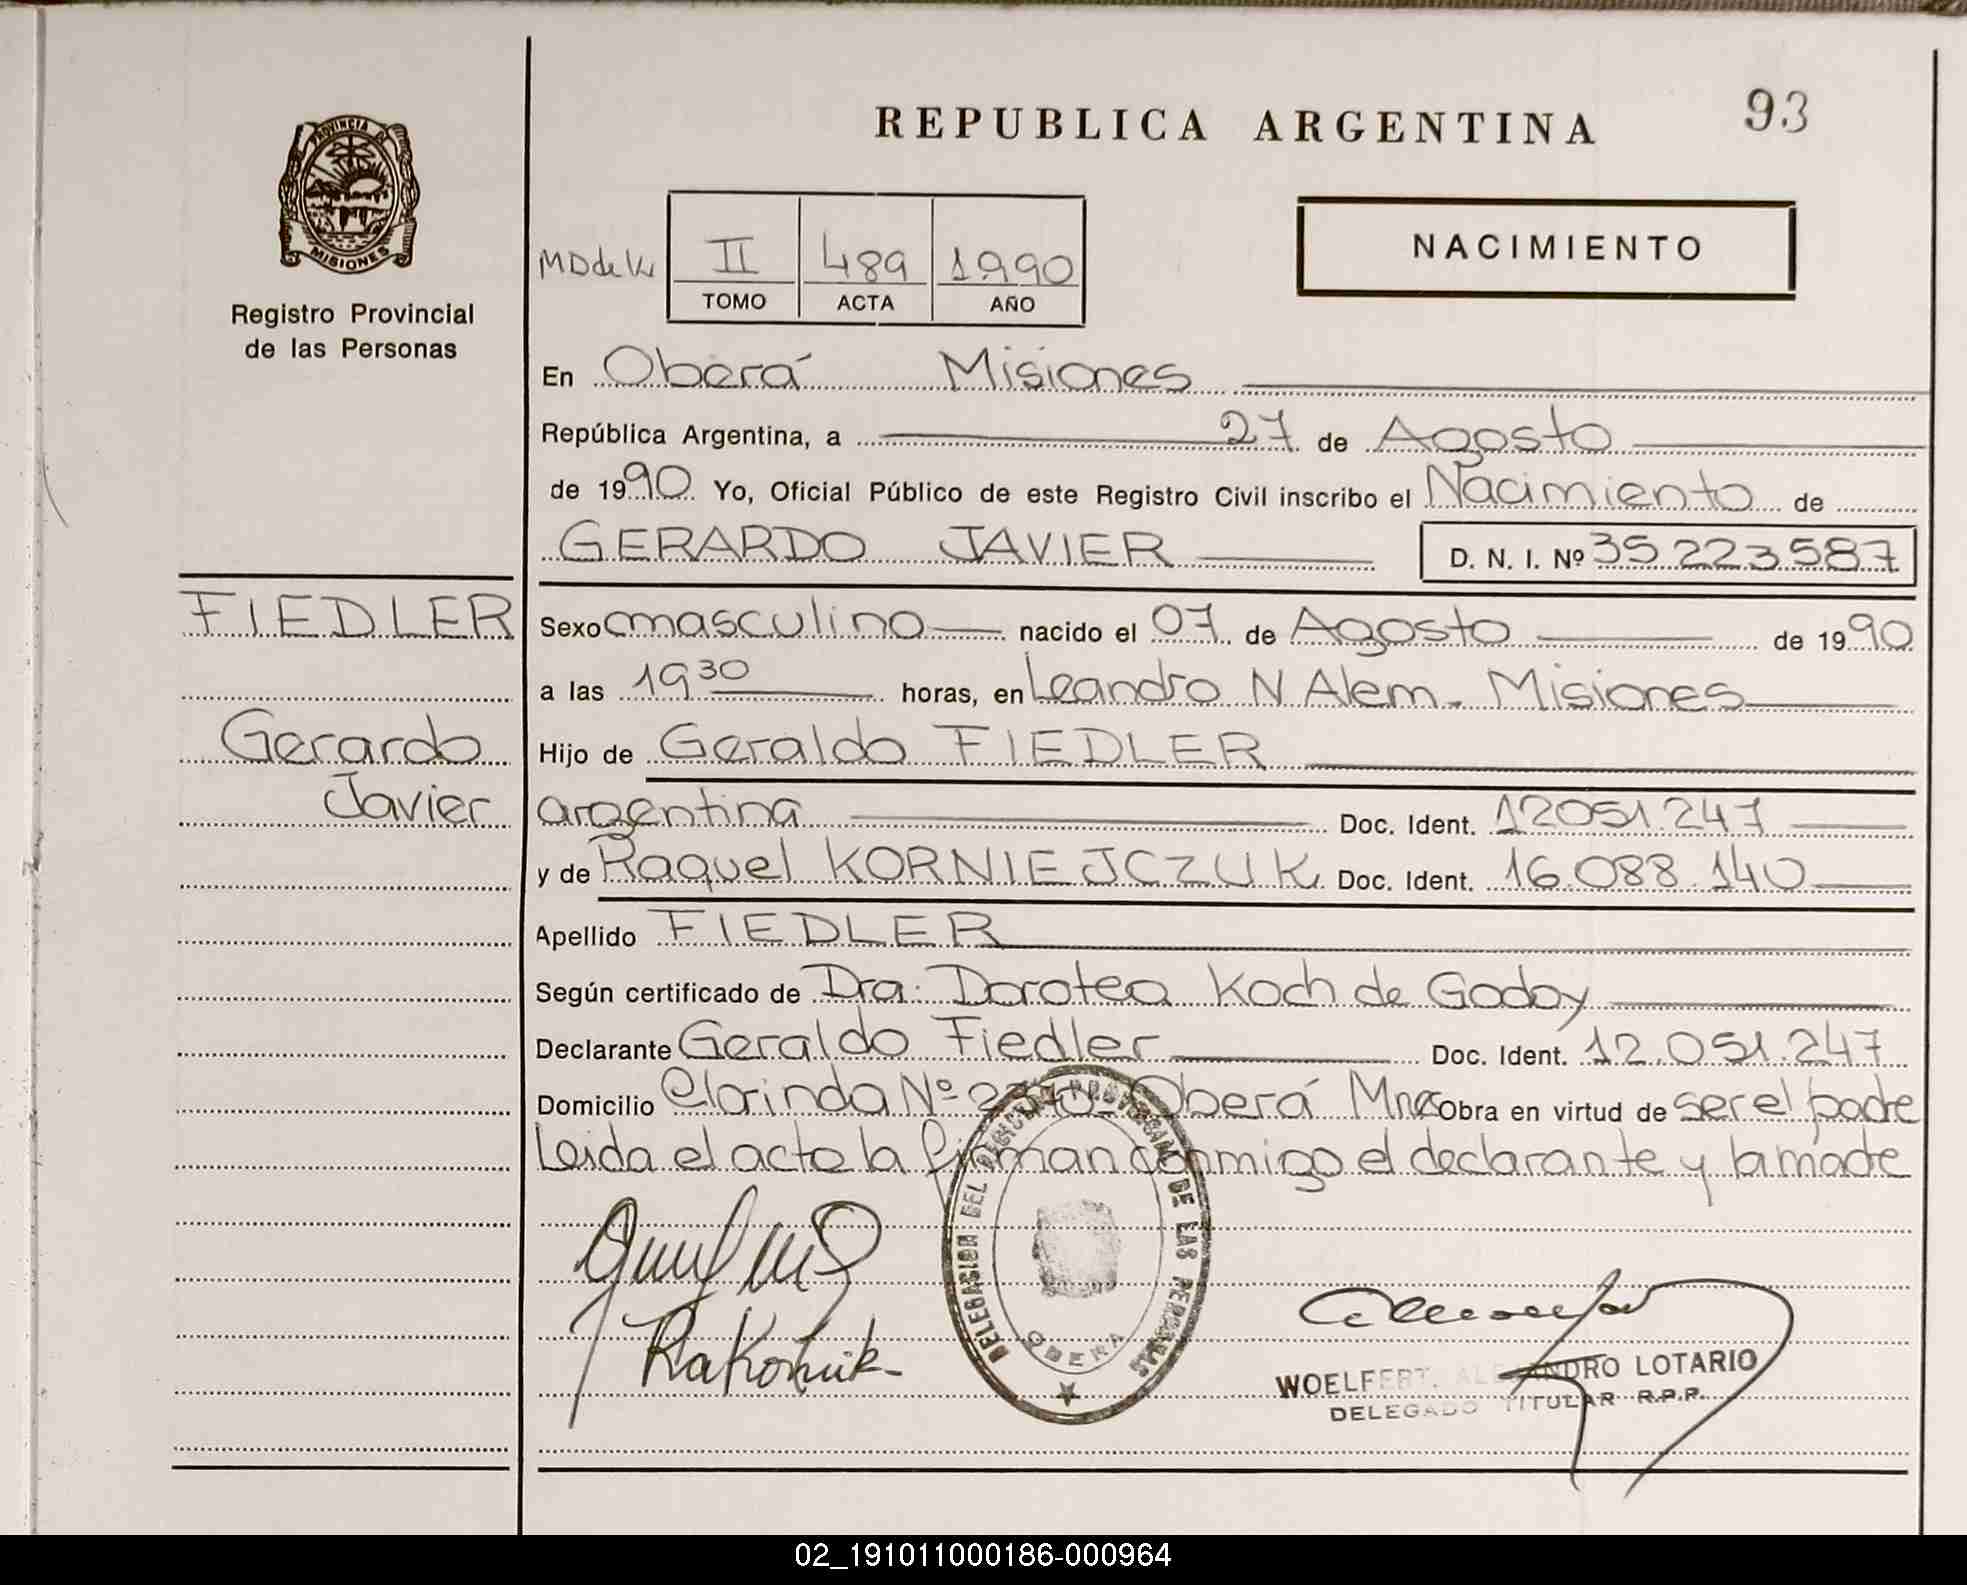 93
REPUBLICA ARGENTINA
PROVINCIA DE
MISIONES
Registro Provincial
de las Personas
NACIMIENTO
II 489 1990
TOMO ACTA AÑO
En Oberá Misiones
República Argentina, a 27 de Agosto
de 1990 Yo, Oficial Público de este Registro Civil inscribo el Nacimiento de
GERARDO JAVIER D. N. I. Nº 35.223.587
FIEDLER
Gerardo
Javier
Sexo masculino nacido el 07 de Agosto de 1990
a las 19 30 horas, en Leandro N Alem. Misiones
Hijo de Geraldo FIEDLER
argentina Doc. Ident. 12051.247
y de Raquel KORNIEJCZUK Doc. Ident. 16.088.140
Apellido FIEDLER
Según certificado de Dra. Dorotea Koch de Godoy
Declarante Geraldo Fiedler Doc. Ident. 12.051.247
Domicilio Clorinda Nº Oberá Mnes Obra en virtud de ser el padre
Leida el acta la firman conmigo el declarante y la madre
DELEGACION DEL REGISTRO PROVINCIAL DE LAS PERSONAS
OBERA
WOELFERT, ALEJANDRO LOTARIO
DELEGADO TITULAR R.P.P.
02_191011000186-000964